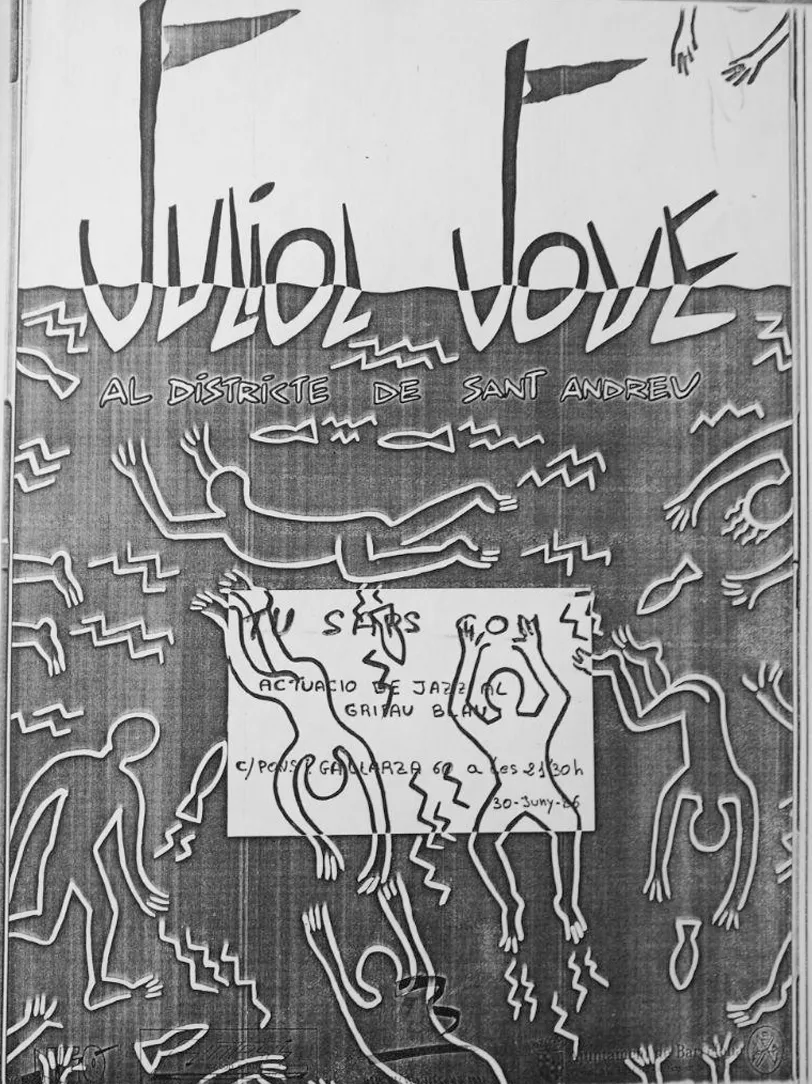 JULIOL JOVE
AL DISTRICTE DE SANT ANDREU
TU SAPS CO
ACTUACIO DE JAZZ AL
GRIFAU BLAU
C/PONS I GALLARZA 60 a les 21'30h
30-Juny-86
Ajuntament de Barcelona